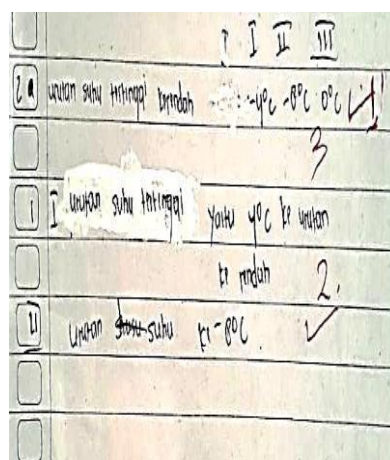 I I II III
2a urutan suhu tertinggi kerendah : -4°C -8°C 0°C
3
I urutan suhu tertinggi yaitu 4°C ke urutan
ke rendah 2.
II urutan suhu ke -8°C